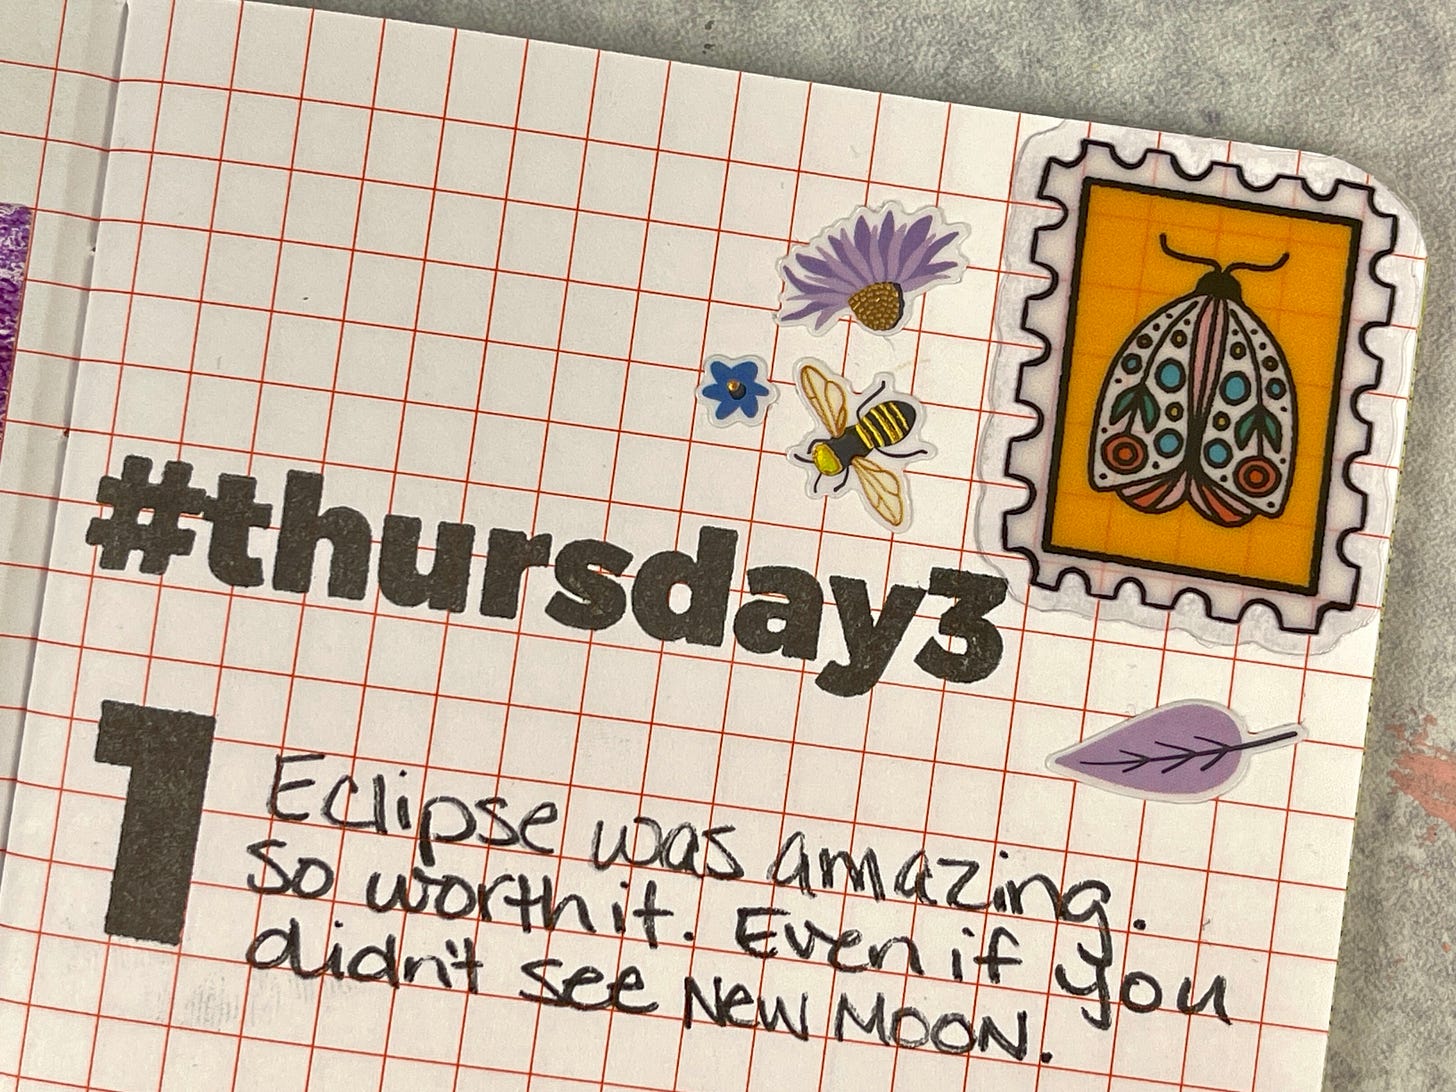 #thursday3
1
Eclipse was amazing.
so worth it. Even if you
didn't see New Moon.